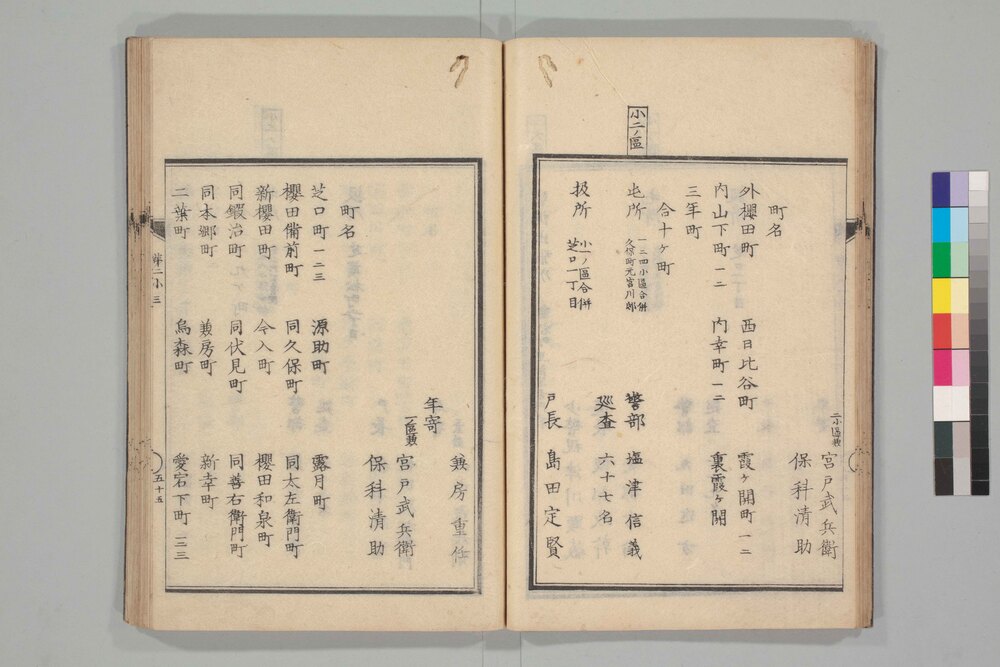 二小區兼 宮戸武兵衛
保科清助
町名
外櫻田町 西日比谷町 霞ヶ關町 一二
内山下町 一二 内幸町 一二 裏霞ヶ關
三年町
合十ヶ町
小二ノ區
屯所 一三四小區合併 警部 塩津信義
巡査 六十七名
扱所 小一ノ區合併 芝口一丁目 戸長 島田定賢
兼房重任
年寄 一ノ區兼 宮戸武兵衛
保科清助
町名
芝口町 一二三 源助町 露月町
櫻田備前町 同久保町 同太左衛門町
新櫻田町 今入町 櫻田和泉町
同鍛冶町 同伏見町 同善右衛門町
同本郷町 兼房町 新幸町
二葉町 烏森町 愛宕下町 一二三
第二小三
五十五